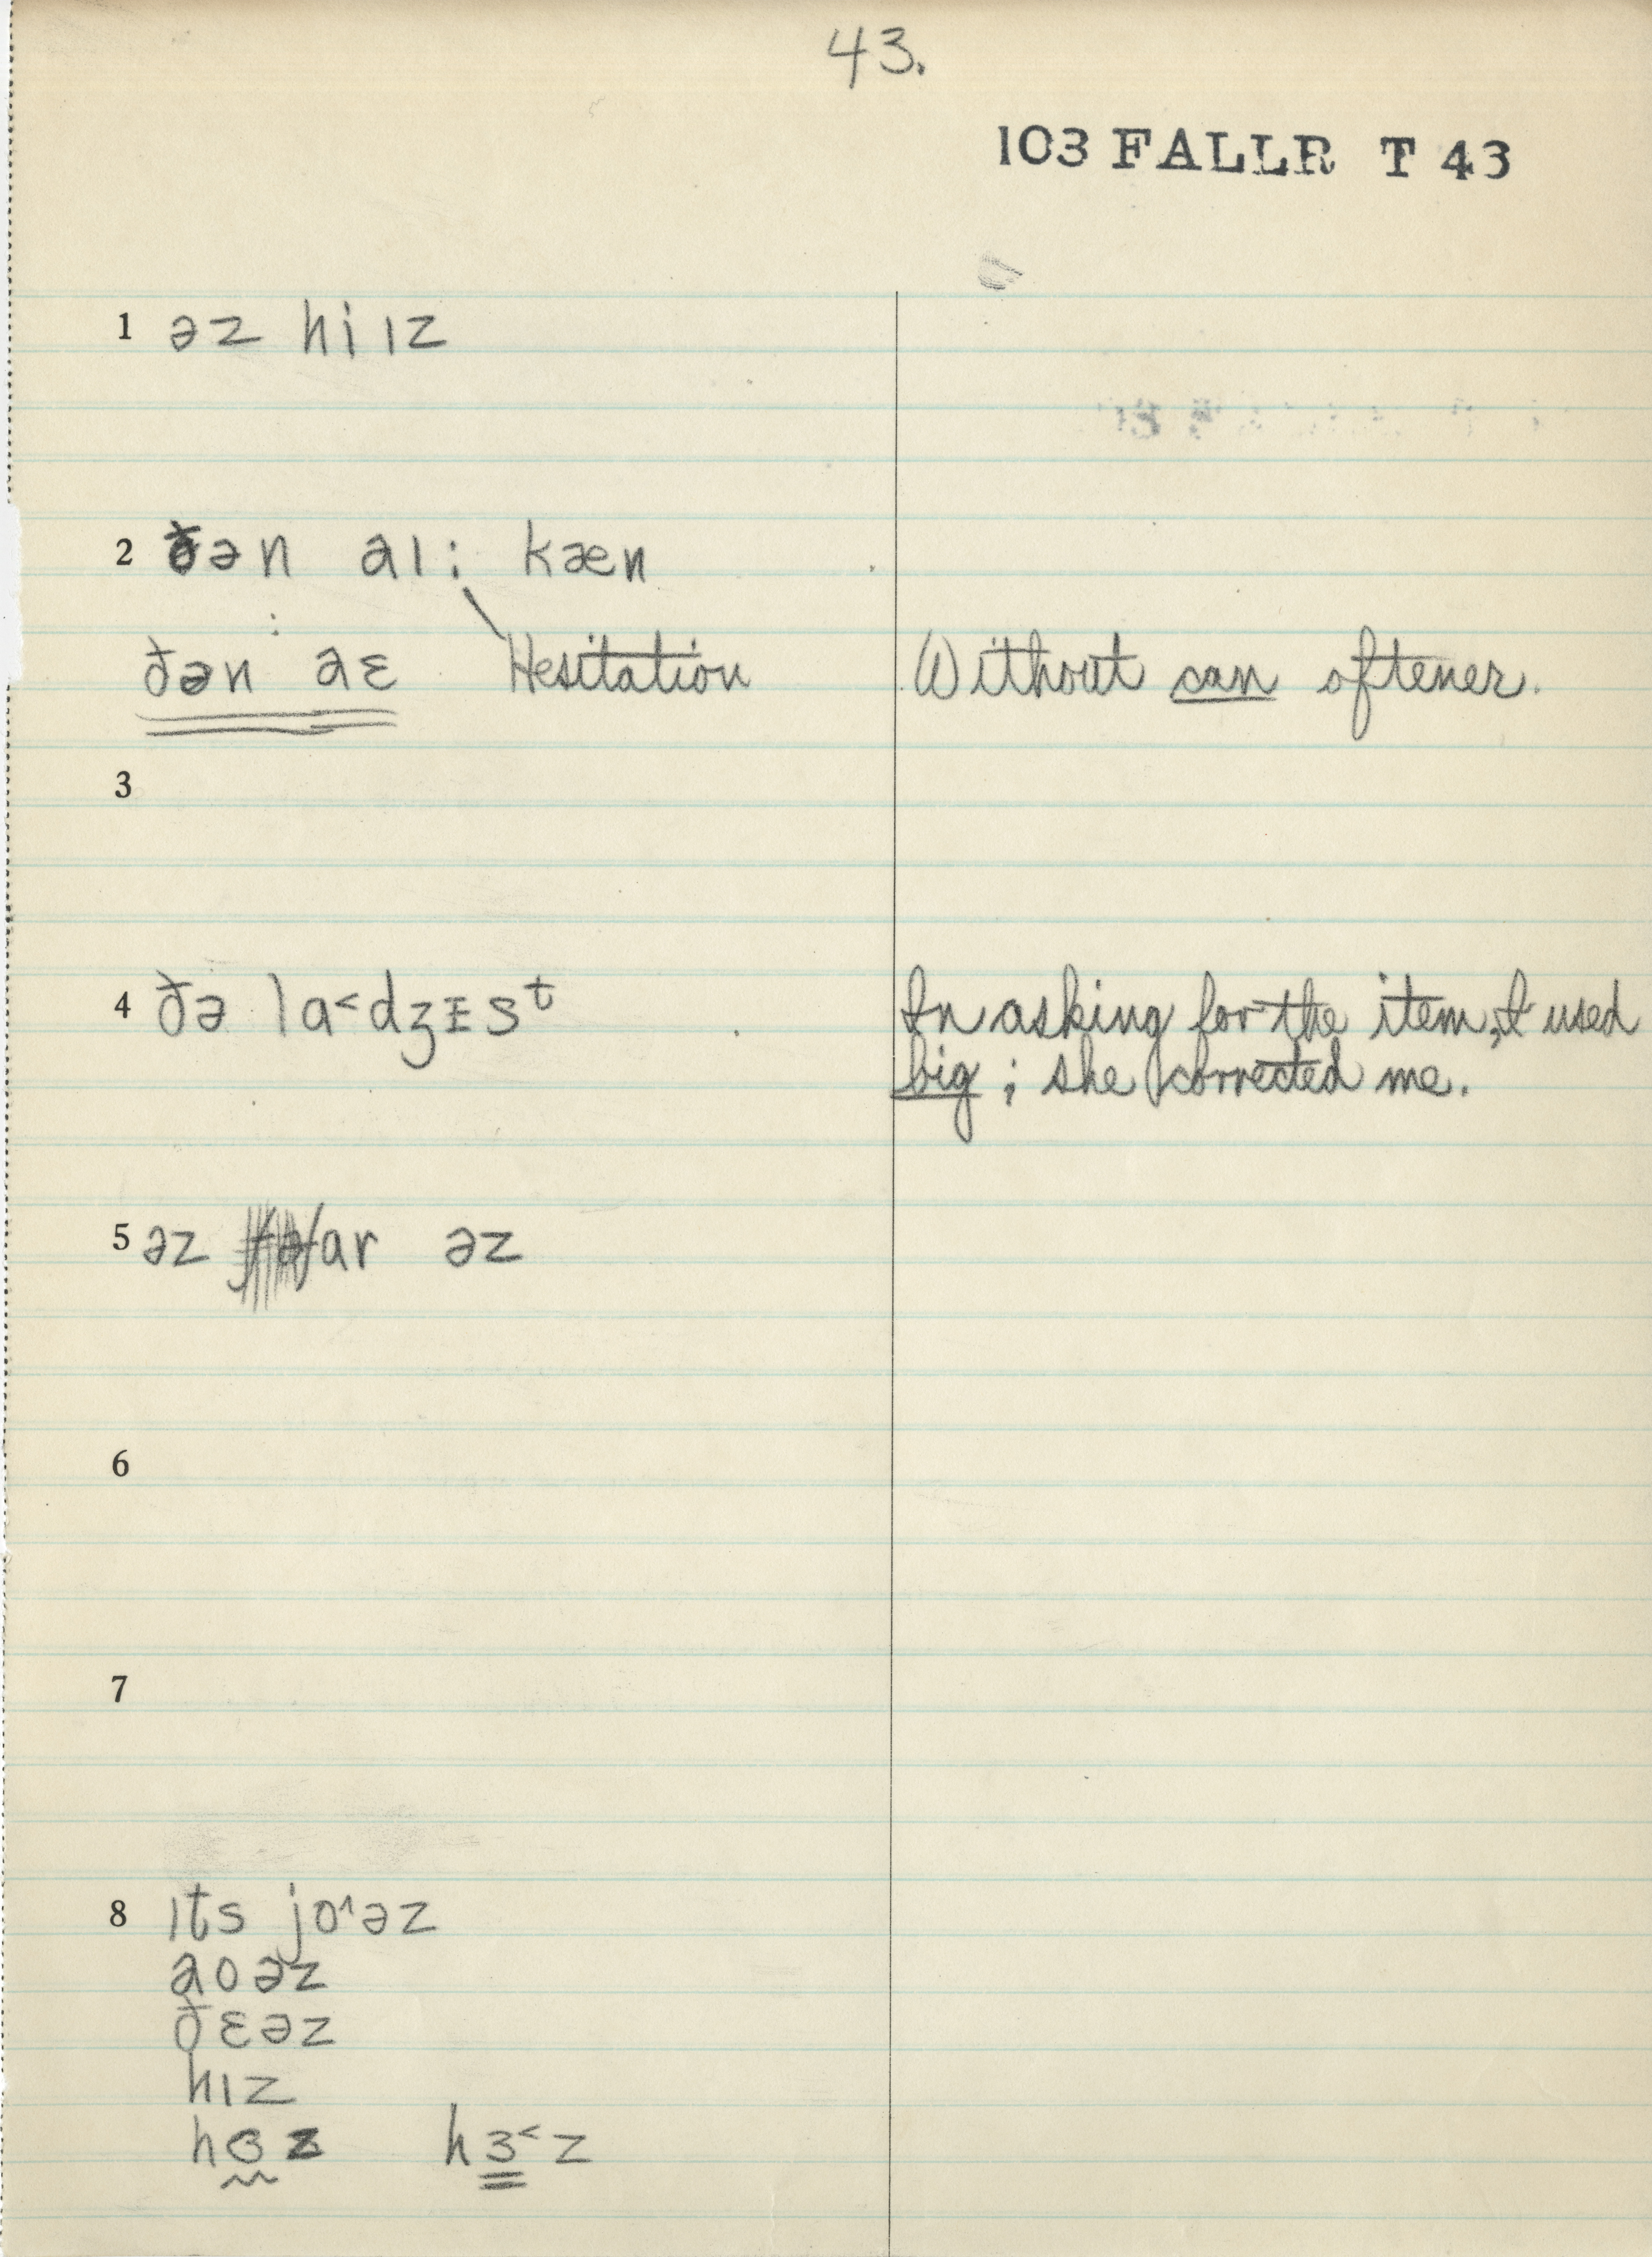 43.
103 FALLR T 43
1 əz hi ɪz
2 ðən aɪ: kæn
ðən aɛ Hesitation Without can oftener.
3
4 ðə la˂dʒɪsᵗ In asking for the item, I used
big; she corrected me.
5 əz far əz
6
7
8 ɪts jo˄əz
aʊəz
ðɛəz
hɪz
hɜz hɜ˂z